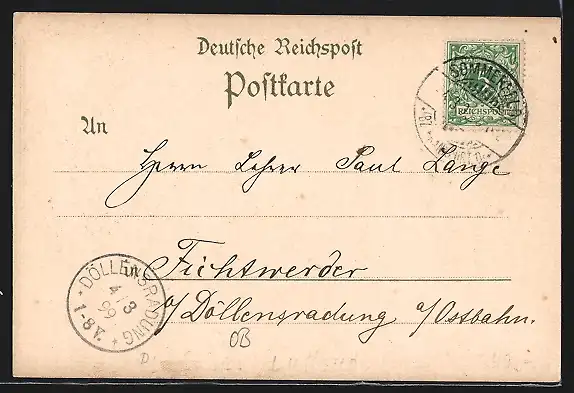 Deutsche Reichspost
Postkarte
SOMMERFELD
REICHSPOST
An
Herrn Lehrer Paul Lange
in Fichtwerder
b/ Döllensradung a/Ostbahn.
DÖLLENSRADUNG
4/3
99
1-8 V.
OB